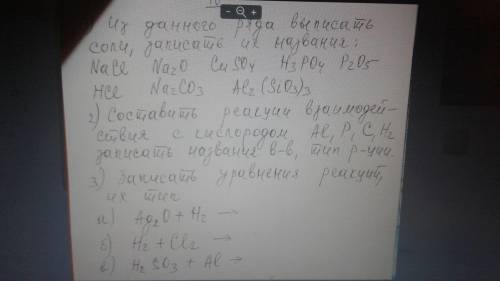 Из данного ряда выписать
соли, записать их названия:
NaCl Na2O CuSO4 H3PO4 P2O5
HCl Na2CO3 Al2(SiO3)3
2) Составить реакции взаимодей-
ствия с кислородом Al, P, C, H2
записать названия в-в, тип р-ции.
3) Записать уравнения реакций,
их тип
а) Ag2O + H2 →
б) H2 + Cl2 →
в) H2SO3 + Al →